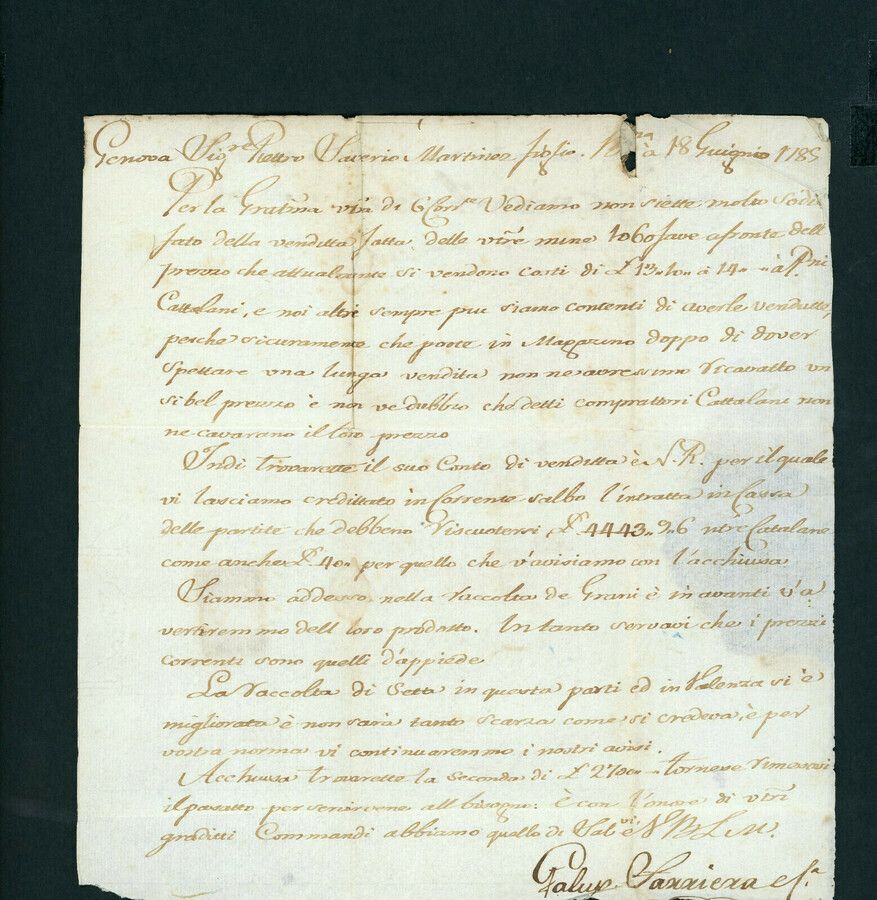 Genova Sig.re Piettro Saverio Martinez figlio. B.na à 18 Guignio 1785
Per la Gratma vra di 6 Corr.te Vediamo non siette molto sodi
sfato della vendita fatta delle vtre mine 1060 fave afronte dell
prezzo che attualmente si vendono costi di £ 13.. 10.. à 14.. à P.ni
Cattalani, e noi altri sempre piu siamo contenti di averle vendutte,
perche sicuramente che poste in Magazzino doppo di dover
spettare una lunga vendita non ne avressimo ricavatto un
si bel prezzo è non ve dubbio che detti comprattori Cattalani non
ne cavarano il loro prezzo
Indi trovarette il suo Conto di venditta è N. R. per il quale
vi lasciamo credittato in Corrente salbo l'intratta in Cassa
delle partite che debbeno Riscuotersi £ 4443.. 9.. 6 ntre Catalane
come anche £ 40.. per quello che v'avisiamo con l'acchiusa
Siammo addesso nella raccolta de Grani è in avanti v'a
vertiremmo dell loro prodotto. In tanto servavi che i prezzi
correnti sono quelli d'appiede
La raccolta di Setta in questa parti ed in Valenza si è
migliorata è non sarà tanto scarza come si credeva, è per
vostra norma vi continuaremmo i nostri avisi.
Acchiusa trovarette la seconda di £ 2700.. tornese rimessavi
il pasatto per servirvene all bisogno: è con l'onore di vtri
graditti Commandi abbiamo quello di Sal.vi è N B L M.
Galup Sarriera e C.a